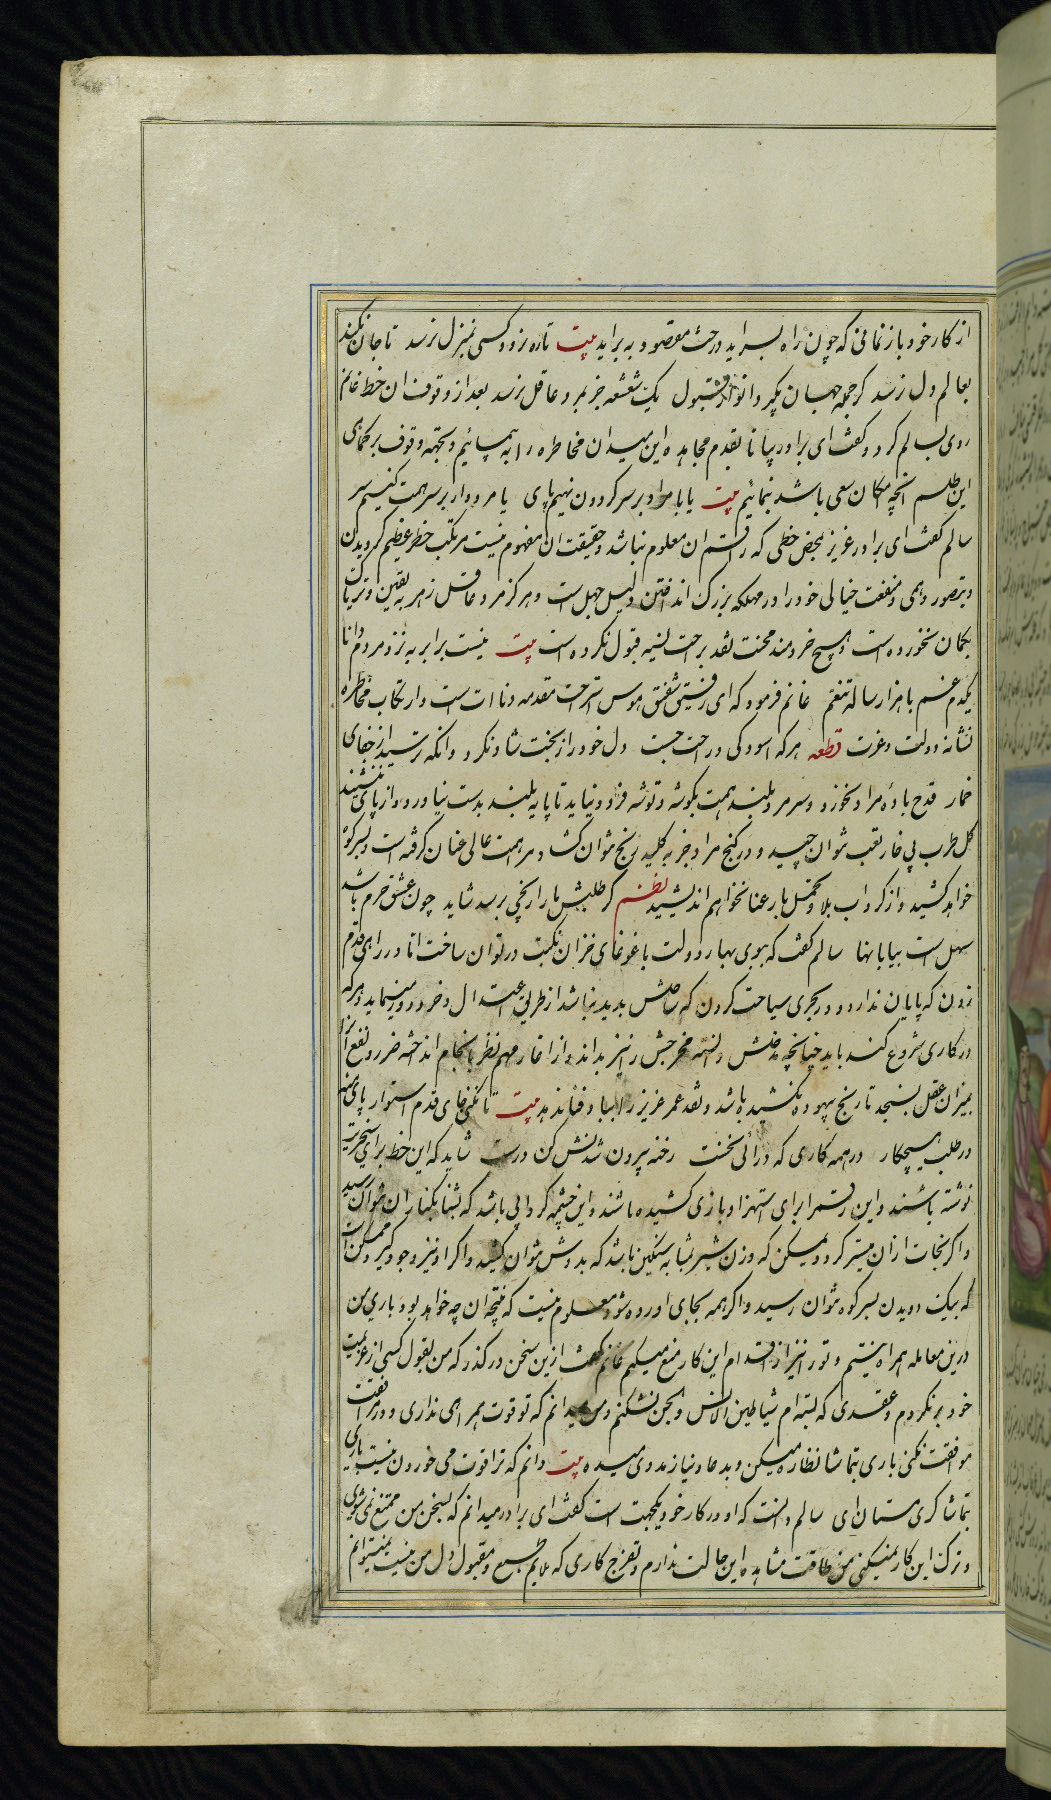 از کار خود باز نمانی که چون راه بسر اید درخت مقصود به بر اید بیت تا ره نرود کسی بمنزل نرسد تا جان نکند
بعالم دل نرسد گر جمله جهان بگیرد انوار قبول یک شعشعه جز بمرد عاقل نرسد بعد از وقوف ان خط غانم
روی بسالم کرد و گفت ای برادر بیا تا بقدم مجاهده این میدان مخاطره را به پیمائیم و بجهة وقوف بر کماهی
این طلسم انچه امکان سعی باشد بنمائیم بیت یا با مراد بر سر گردون نهیم پای یا مردوار بر سر همت کنیم سر
سالم گفت ای برادر عزیز بمحض خطی که راقم ان معلوم نباشد و حقیقت ان مفهوم نیست مرتکب خطر عظیم گردیدن
و بتصور وهمی و منفعت خیالی خود را در مهلکه بزرگ انداختن دلیل جهل است و هرگز مرد عاقل زهر به یقین و تریاک
بگمان نخورده است و هیچ خردمند محنت نقد براحت نسیه قبول نکرده است بیت نیست برابر به نزد مردم دانا
یکدم غم با هزار ساله تنعم غانم فرمود که ای رفیق شفیق هوس استراحت مقدمه دناات است و ارتکاب مخاطره
نشانه دولت و عزت قطعه هر که اسودگی و راحت جست دل خود را ز بخت شاد نکرد وانکه ترسید از جفای
خمار قدح بادهٔ مراد نخورد و سر مرد بلند همت بگوشه و توشه فرو نیاید تا پایه بلند بدست نیاورد از پای ننشیند
گل طرب بی خار تعب نتوان چید و در گنج مراد جز به کلید رنج نتوان گشاد و مرا همت عالی عنان گرفته است و بسر کوه
خواهد کشید و از گرداب بلا و تحمل بار عنا نخواهم اندیشید نظم گر در طلبش ما را رنجی برسد شاید چون عشق حرم باشد
سهل است بیابانها سالم گفت که ببوی بهار دولت با غوغای خزان نکبت در توان ساخت اما در راهی قدم
زدن که پایان ندارد و در بحری سیاحت کردن که ساحلش پدید نباشد از طریق اعتدال و خرد دور مینماید و هر که
در کاری شروع کند باید چنانچه مدخلش دانسته مخرجش را نیز بداند و از اغاز مهم نظر بانجام انداخته ضرر و نفع انرا
بمیزان عقل بسنجد تا رنج بیهوده نکشیده باشد و نقد عمر عزیز را بباد فنا ندهد بیت تا نکنی جای قدم استوار پای منه
در طلب هیچکار در همه کاری که درائی نخست رخنه بیرون شدنش کن درست شاید که این خط برای سخریت
نوشته باشند و این رقم را برای استهزا و بازی کشیده باشند و این چشمه گردابی باشد که بشنا بکنار ان نتوان رسید
و اگر نجات از ان میسر گردد ممکن که وزن شیر بمثابه سنگین باشد که بدوش نتوان کشید و اگر او نیز وجود گیرد ممکن است
که بیک دویدن بسر کوه نتوان رسید و اگر همه بجای اورده شود معلوم نیست که نتیجه ان چه خواهد بود باری من
درین معامله همراه نیستم و تو را نیز از اقدام این کار منع میکنم غانم گفت ازین سخن در گذر که من بقول کسی از عزیمت
خود بر نگردم و عقدی که بسته ام شیاطین الانس و الجن نشکنم و من میدانم که تو قوت همراهی نداری و در مرافقت
موافقت نکنی باری بتماشا نظاره میکن و بدعا و نیاز مددی میده بیت دانم که ترا قوت می خوردن نیست باری
بتماشا گری مستان ای سالم دانست که او در کار خود یکجهت است گفت ای برادر میدانم که بسخن من ممتنع نمی شوی
و ترک این کار نمیکنی من طاقت مشاهده این حالت ندارم و تفرج کاری که ملایم طبع و مقبول دل من نیست نمیتوانم